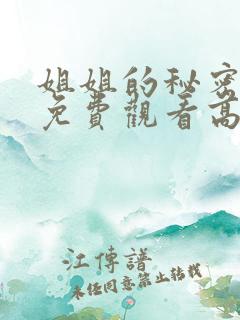 姐姐的秘密
免費觀看高
江傳譜
未经同意禁止转载